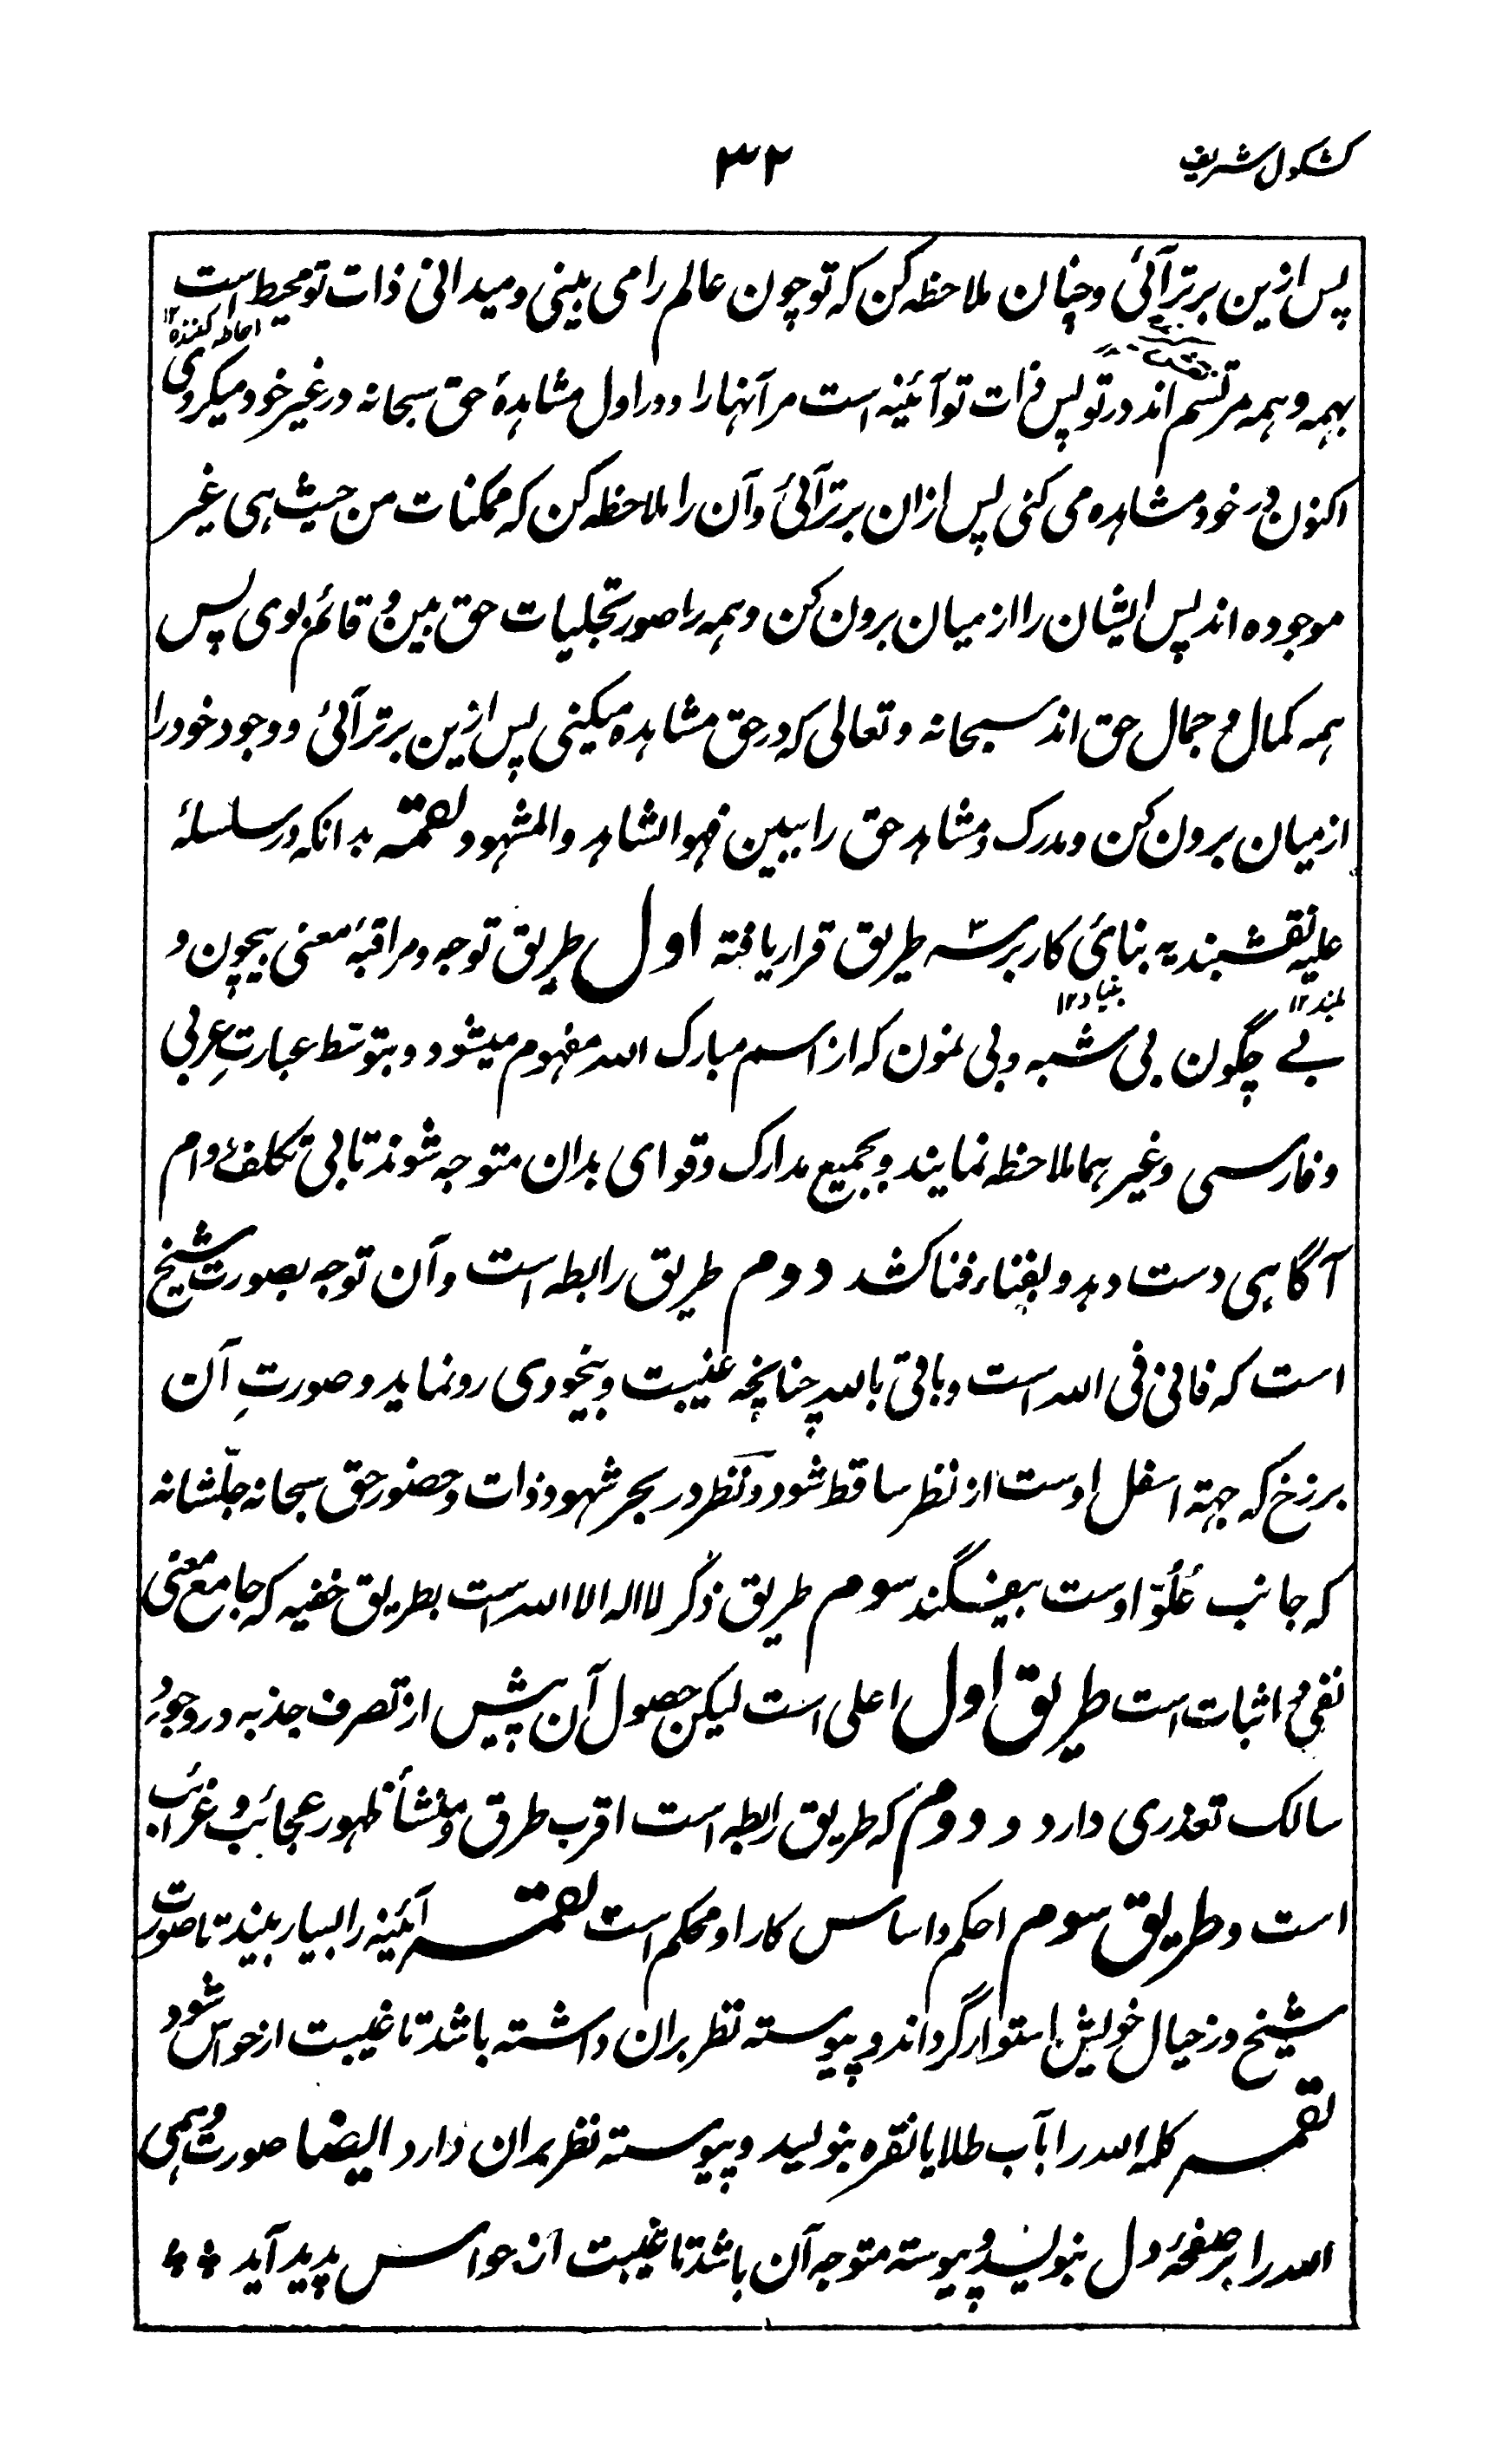 کشکول شریف
۳۲
پس ازین برتر آئی و چنان ملاحظه کن که تو چون عالم را می بینی و میدانی ذات تو محیط است
احاطه کننده ۱۲
بهمه و همه مرتسم اند در تو پس ذات تو آئینه است مر آنها را و در اول مشاهدۀ حق سبحانه در غیر خود میکردی
اکنون در خود مشاهده می کنی پس ازان برتر آئی و آن را ملاحظه کن که ممکنات من حیث هی غیر
موجوده اند پس ایشان را از میان برون کن و همه را صور تجلیات حق بین و قائم بوی پس
همه کمال و جمال حق اند سبحانه و تعالی که در حق مشاهده میکنی پس ازین برتر آئی و وجود خود را
از میان برون کن و مدرک و مشاهد حق را ببین فهو الشاهد والمشهود لقمۃ بدانکه در سلسلۀ
علیه نقشبندیه بنائ کار بر سه طریق قرار یافته اول طریق توجه و مراقبۀ معنی بیچون و
بلند ۱۲ بنیاد ۱۲
بے چگون بی شبه و بی نمون که از اسم مبارک الله مفهوم میشود و بتوسط عبارتِ عربی
و فارسی و غیر هما ملاحظه نمایند و بجمیع مدارک و قوای بدان متوجه شوند تا بی تکلف دوام
آگاهی دست دهد و بفناء فنا کشد دوم طریق رابطه است و آن توجه بصورت شیخ
است که فانی فی الله است و باقی بالله چنانچه غیبت و بیخودی رو نماید و صورتِ آن
برزخ که جهة اسفل اوست از نظر ساقط شود و نظر در بحر شهود ذات و حضور حق سبحانه جلّشانه
که جانب عُلُوّ اوست بیفگند سوم طریق ذکر لا اله الا الله است بطریق خفیه که جامع معنی
نفی و اثبات است طریق اول اعلی است لیکن حصول آن پیش از تصرف جذبه در وجود
سالک تعذری دارد و دوم که طریق رابطه است اقرب طرق و منشأ ظهور عجائب و غرائب
است و طریق سوم احکم و اساس کار او محکم است لقمۃ آئینه را بسیار بیند تا صورت
شیخ در خیال خویش استوار گرداند و پیوسته نظر بران داشته باشد تا غیبت از حواس شود
لقمہ کلمه الله را بآب طلا یا نقره بنویسد و پیوسته نظر بران دارد ایضا صورت وهمی
الله را بر صفحۀ دل بنویسد و پیوسته متوجه آن باشد تا غیبت از حواس پدید آید